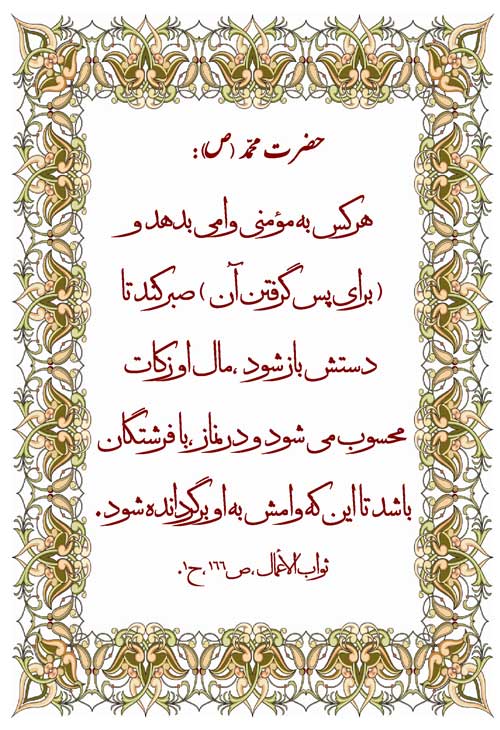 حضرت محمّد (ص):
هرکس به مؤمنی وامی بدهد و
(برای پس گرفتن آن) صبر کند تا
دستش باز شود ،مال او زکات
محسوب می شود و در نماز ،با فرشتگان
باشد تا این که وامش به او برگردانده شود.
ثواب الأعمال، ص۱۶۶، ح۱.